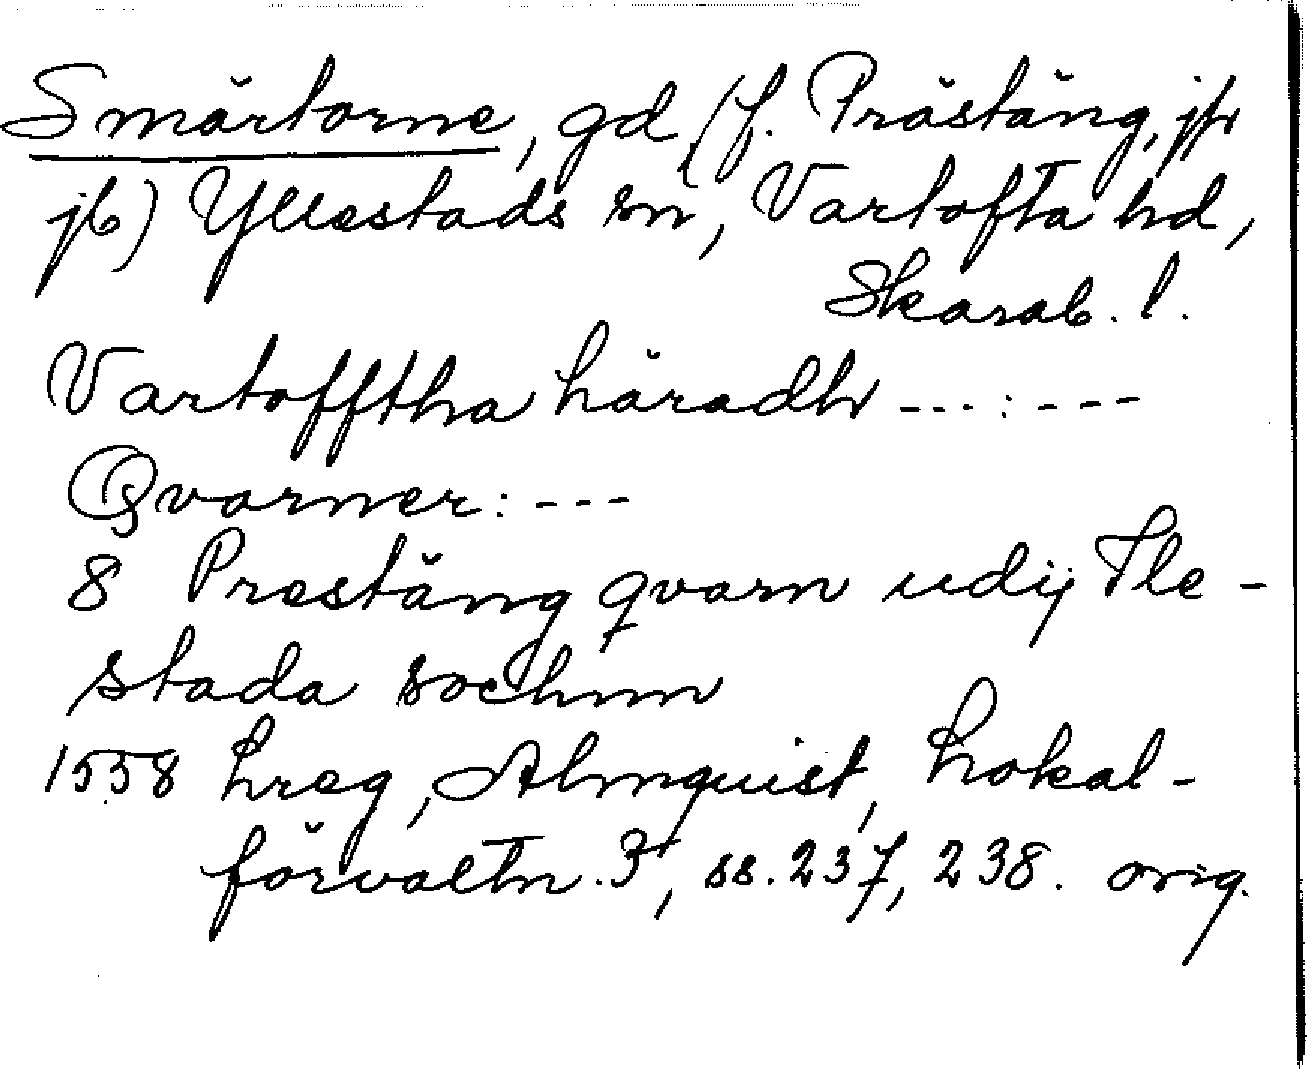 Smärtorne, gd (f. Prästäng, jfr
jb) Yllestads sn, Vartofta hd,
Skarab. l.
Vartofftha häradh ---:---
Qvarner: ---
8 Prestäng qvarn udij Ile-
stada sochnn
1558 Lreg, Almquist, Lokal-
förvaltn. 3, ss. 237, 238. orig.